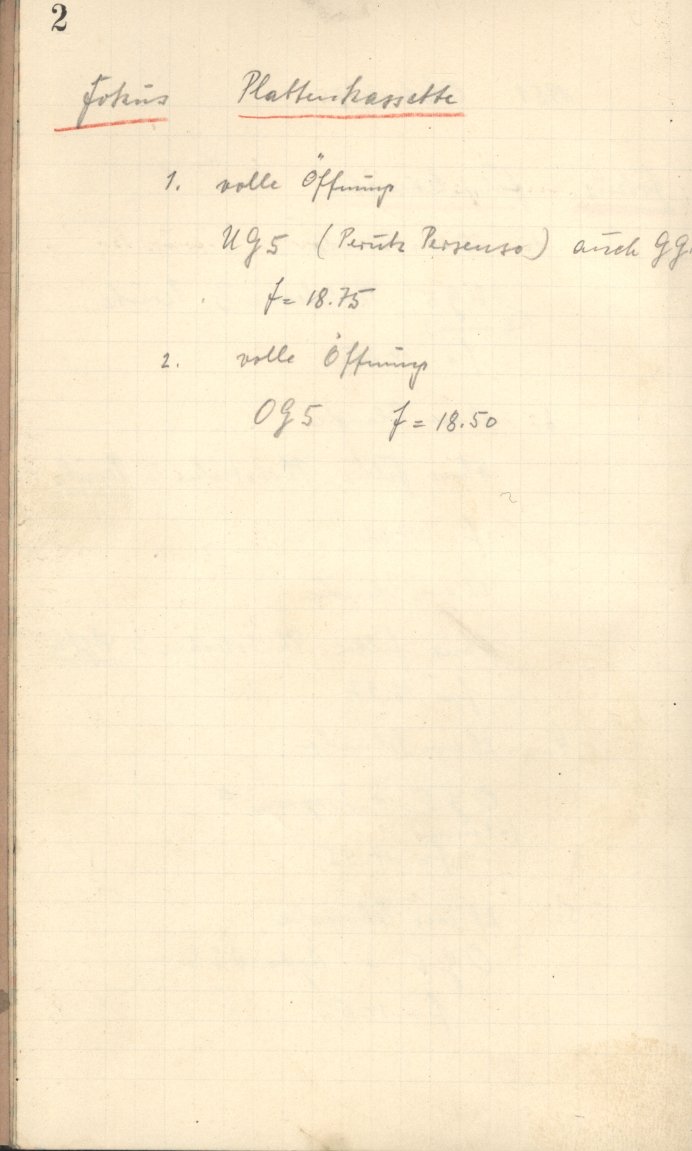 2
Fokus Plattenkassette
1. volle Öffnung
UG5 (Perutz Persenso) auch GG
f = 18.75
2. volle Öffnung
OG5 f = 18.50